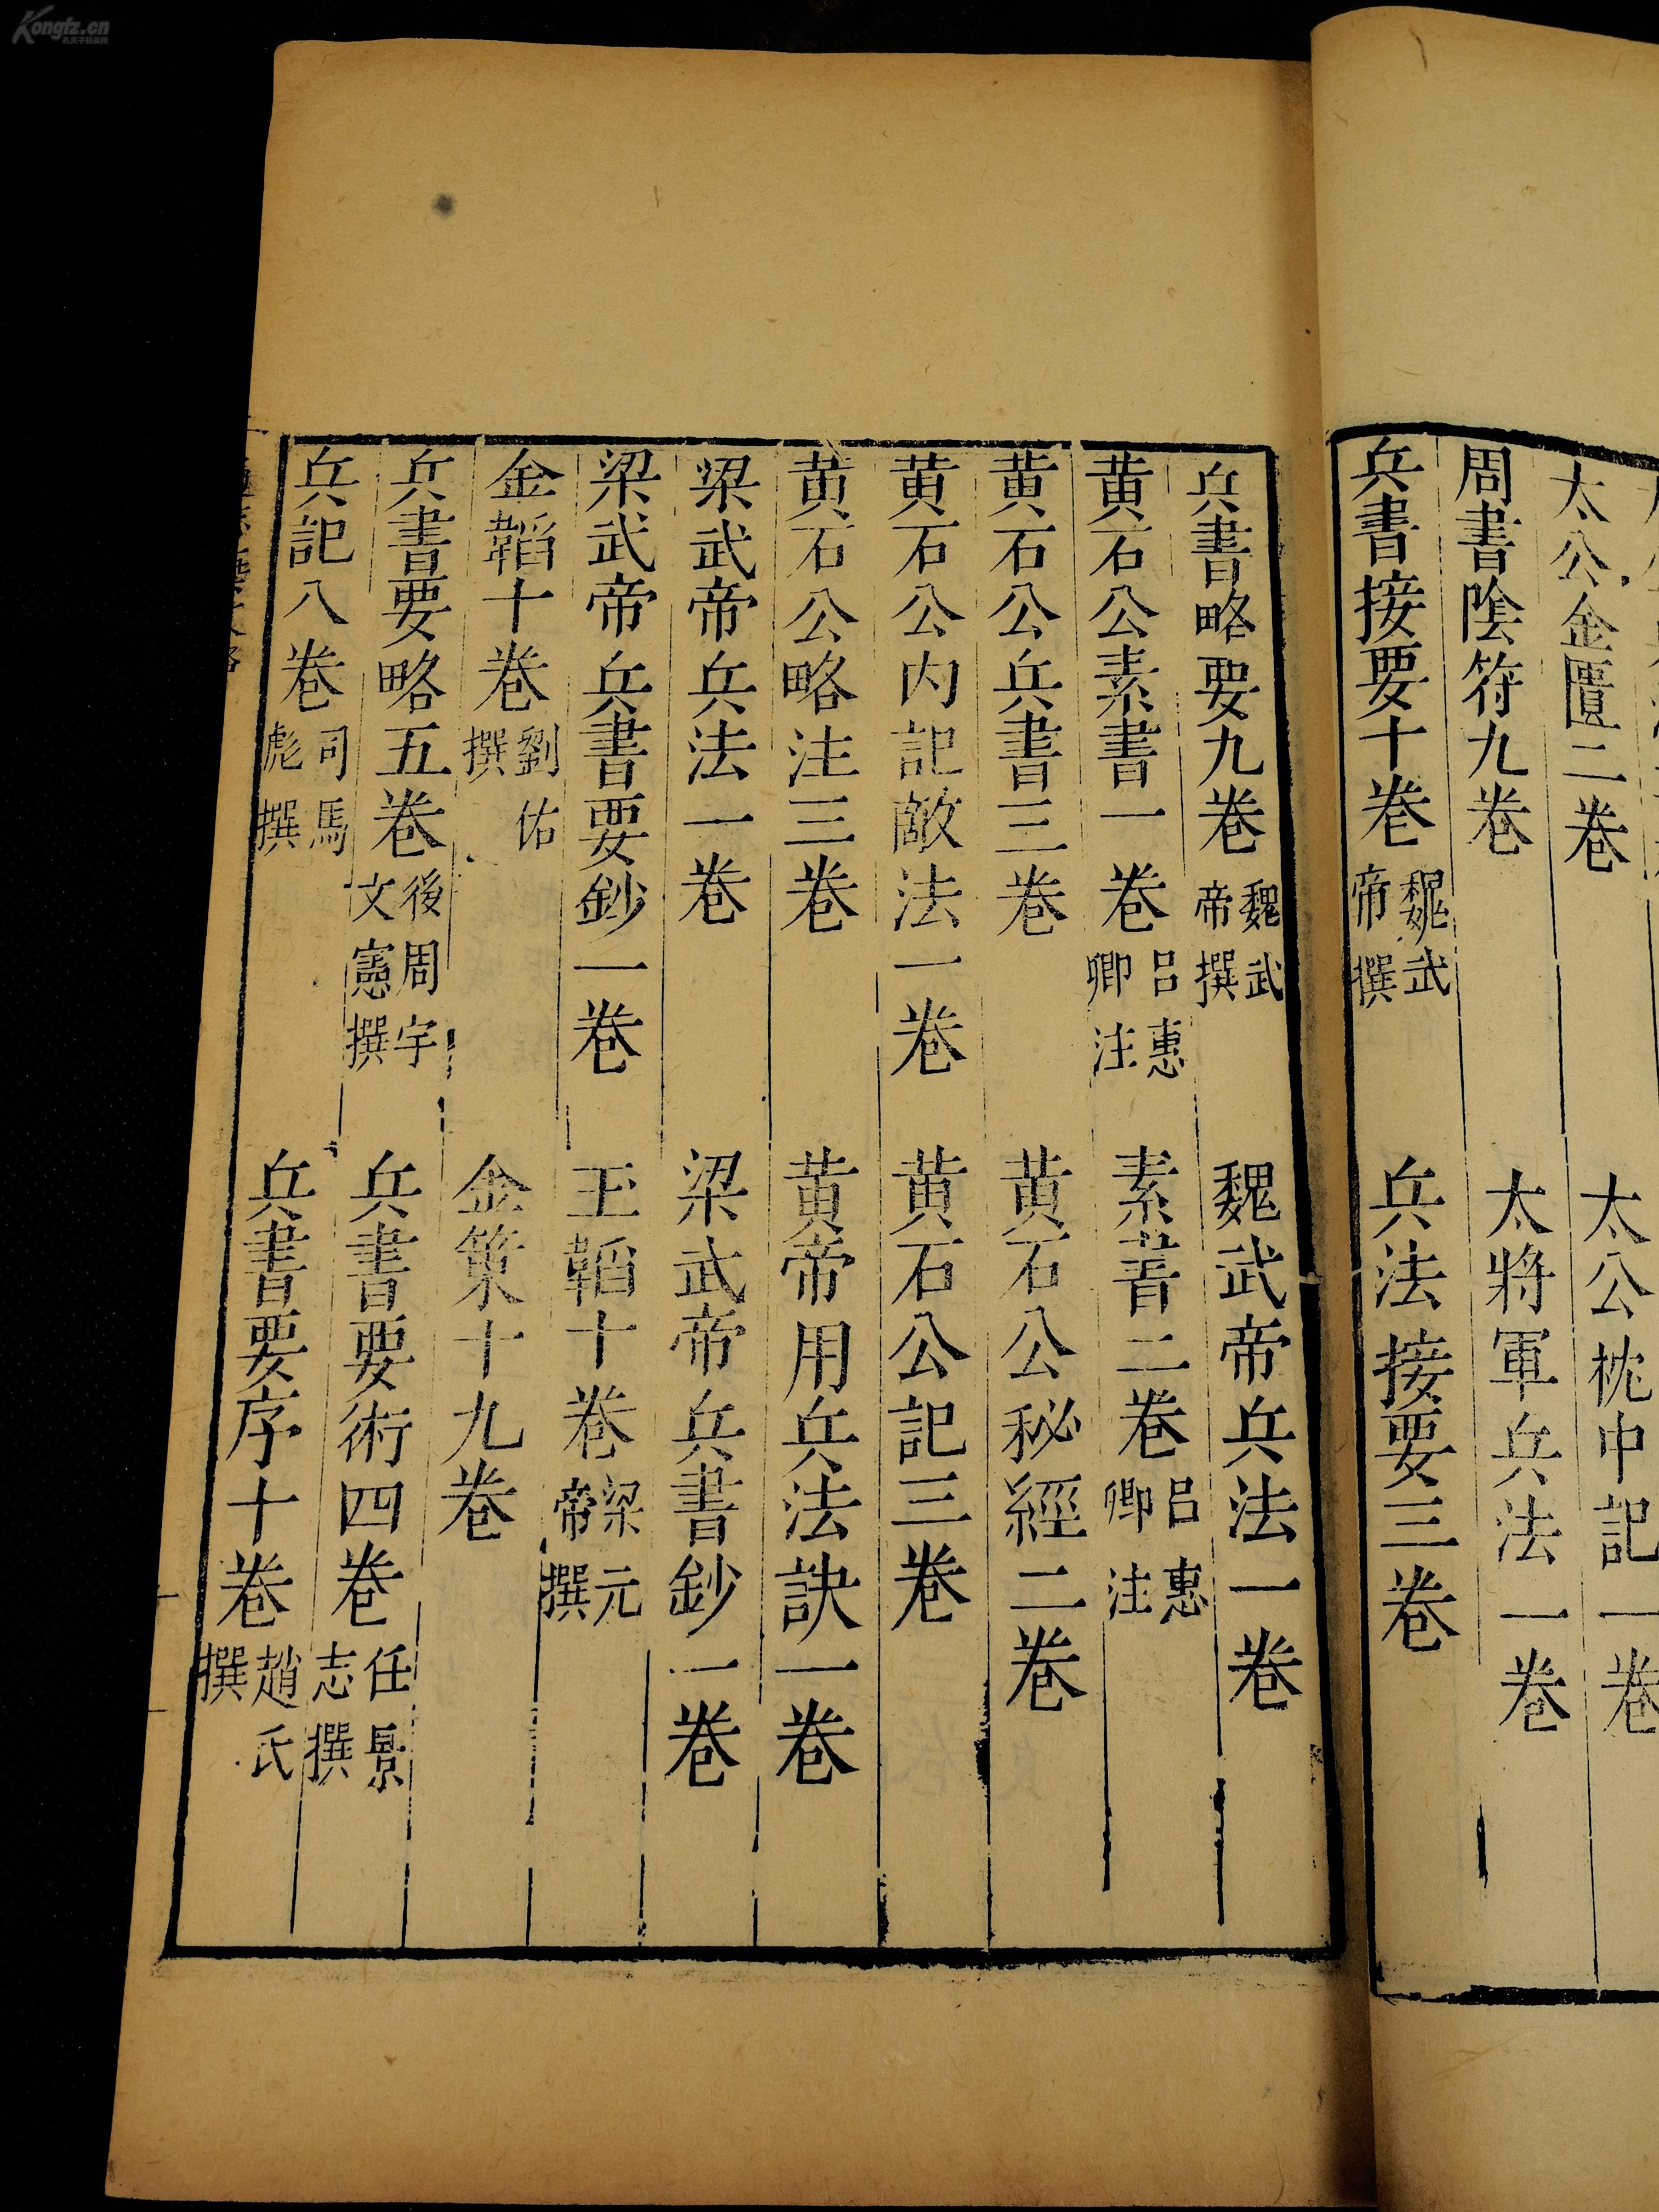 太公金匱二卷 太公枕中記一卷
周書陰符九卷 太將軍兵法一卷
兵書接要十卷 魏武帝撰 兵法接要三卷
兵書略要九卷 魏武帝撰 魏武帝兵法一卷
黃石公素書一卷 呂惠卿注 素書二卷 呂惠卿注
黃石公兵書三卷 黃石公秘經二卷
黃石公内記敵法一卷 黃石公記三卷
黃石公略注三卷 黃帝用兵法訣一卷
梁武帝兵法一卷 梁武帝兵書鈔一卷
梁武帝兵書要鈔一卷 玉韜十卷 梁元帝撰
金韜十卷 劉佑撰 金策十九卷
兵書要略五卷 後周宇文憲撰 兵書要術四卷 任景志撰
兵記八卷 司馬彪撰 兵書要序十卷 趙氏撰
Kongfz.cn